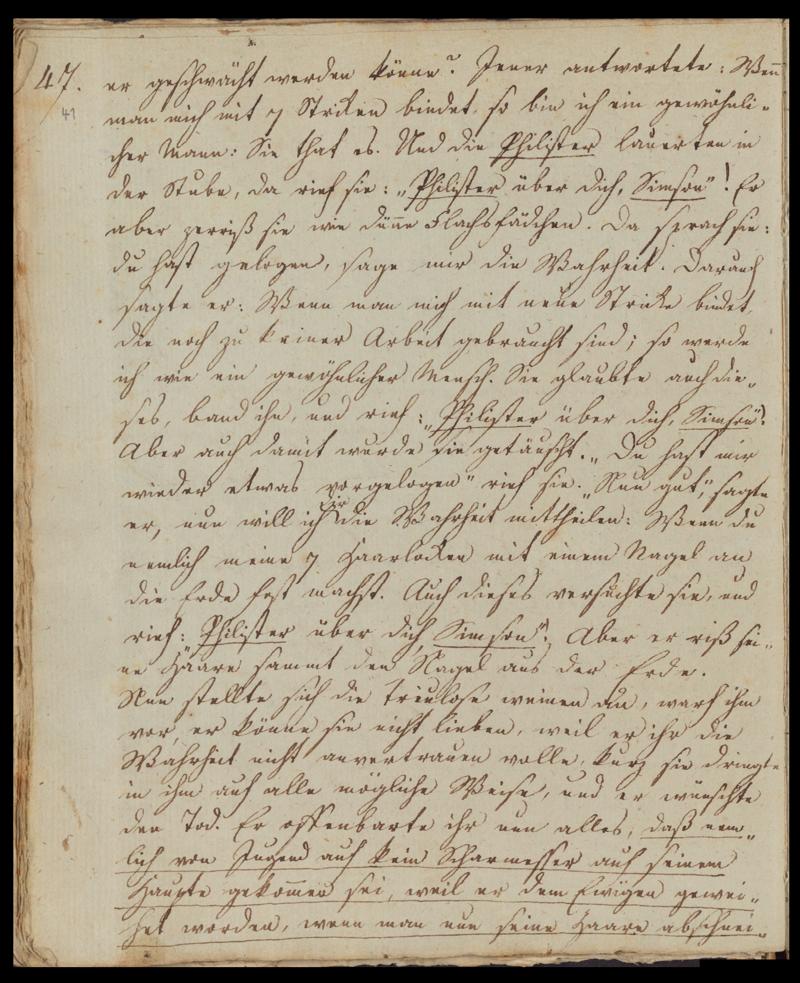 47. er geschwächt werden könne? Jener antwortete: Weñ
41
man mich mit 7 Stricken bindet, so bin ich ein gewöhnli-
cher Mann: Sie that es. Und die Philister lauerten in
der Stube, da rief sie: „Philister über dich, Simson"! Er
aber zerriß sie wie dünne Flachsfädchen. Da sprach sie:
du hast gelogen, sage mir die Wahrheit. Darauf
sagte er: Wenn man mich mit neue Stricke bindet,
die noch zu keiner Arbeit gebraucht sind; so werde
ich wie ein gewöhnlicher Mensch. Sie glaubte auch die-
ses, band ihn, und rief: „Philister über dich, Simson"!
Aber auch damit wurde sie getäuscht. „Du hast mir
wieder etwas vorgelogen" rief sie. „Nun gut", sagte
er, nun will ich dir die Wahrheit mittheilen: Wenn du
nemlich meine 7 Haarlocken mit einem Nagel an
die Erde fest machst. Auch dieses versuchte sie, und
rief: Philister über dich, Simson"! Aber er riß sei-
ne Haare sammt den Nagel aus der Erde.
Nun stellte sich die Treulose weinen an, warf ihm
vor, er könne sie nicht lieben, weil er ihr die
Wahrheit nicht anvertrauen wolle, kurz sie dringte
in ihm auf alle mögliche Weise, und er wünschte
den Tod. Er offenbarte ihr nun alles, daß nem-
lich von Jugend auf kein Scharmesser auf seinem
Haupte gekom̄en sei, weil er dem Ewigen gewei-
het worden, wenn man nun seine Haare abschnei-